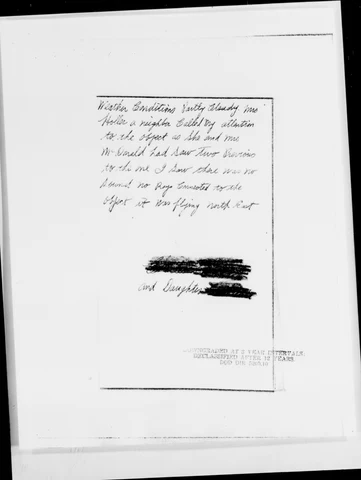 Weather Conditions Partly Cloudy. Mrs
Holler a neighbor Called my attention
to the object as She and Mrs
McDonald had Saw Two Previous
to this one I Saw there was no
Sound no Rays Connected to the
object it was flying north East
and Daughter
DOWNGRADED AT 3 YEAR INTERVALS;
DECLASSIFIED AFTER 12 YEARS
DOD DIR 5200.10